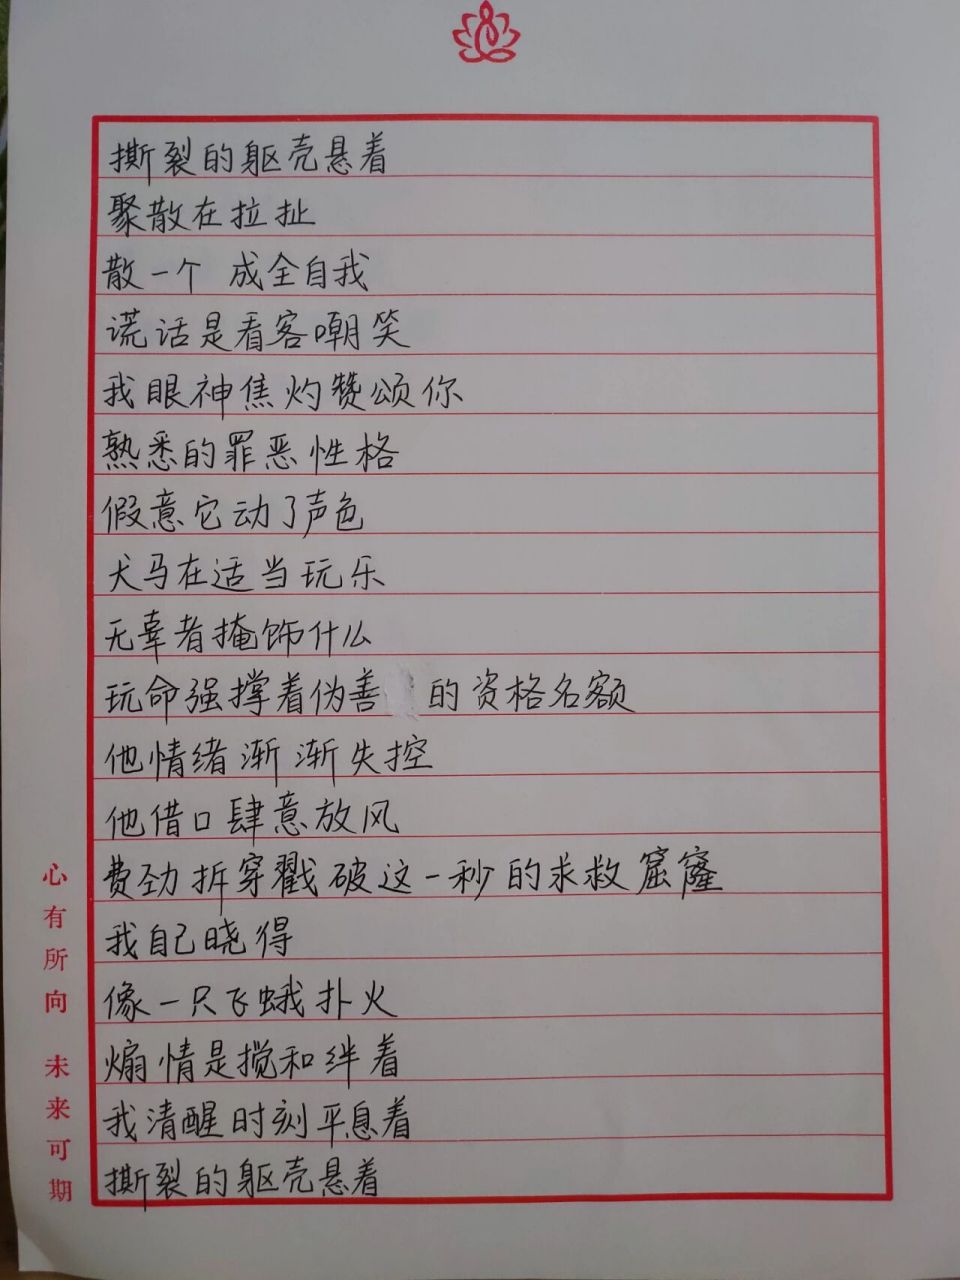 撕裂的躯壳悬着
聚散在拉扯
散一个 成全自我
谎话是看客嘲笑
我眼神焦灼赞颂你
熟悉的罪恶性格
假意它动了声色
犬马在适当玩乐
无辜者掩饰什么
玩命强撑着伪善 的资格名额
他情绪渐渐失控
他借口肆意放风
费劲拆穿戳破这一秒的求救窟窿
我自己晓得
像一只飞蛾扑火
煽情是搅和绊着
我清醒时刻平息着
撕裂的躯壳悬着
心有所向 未来可期